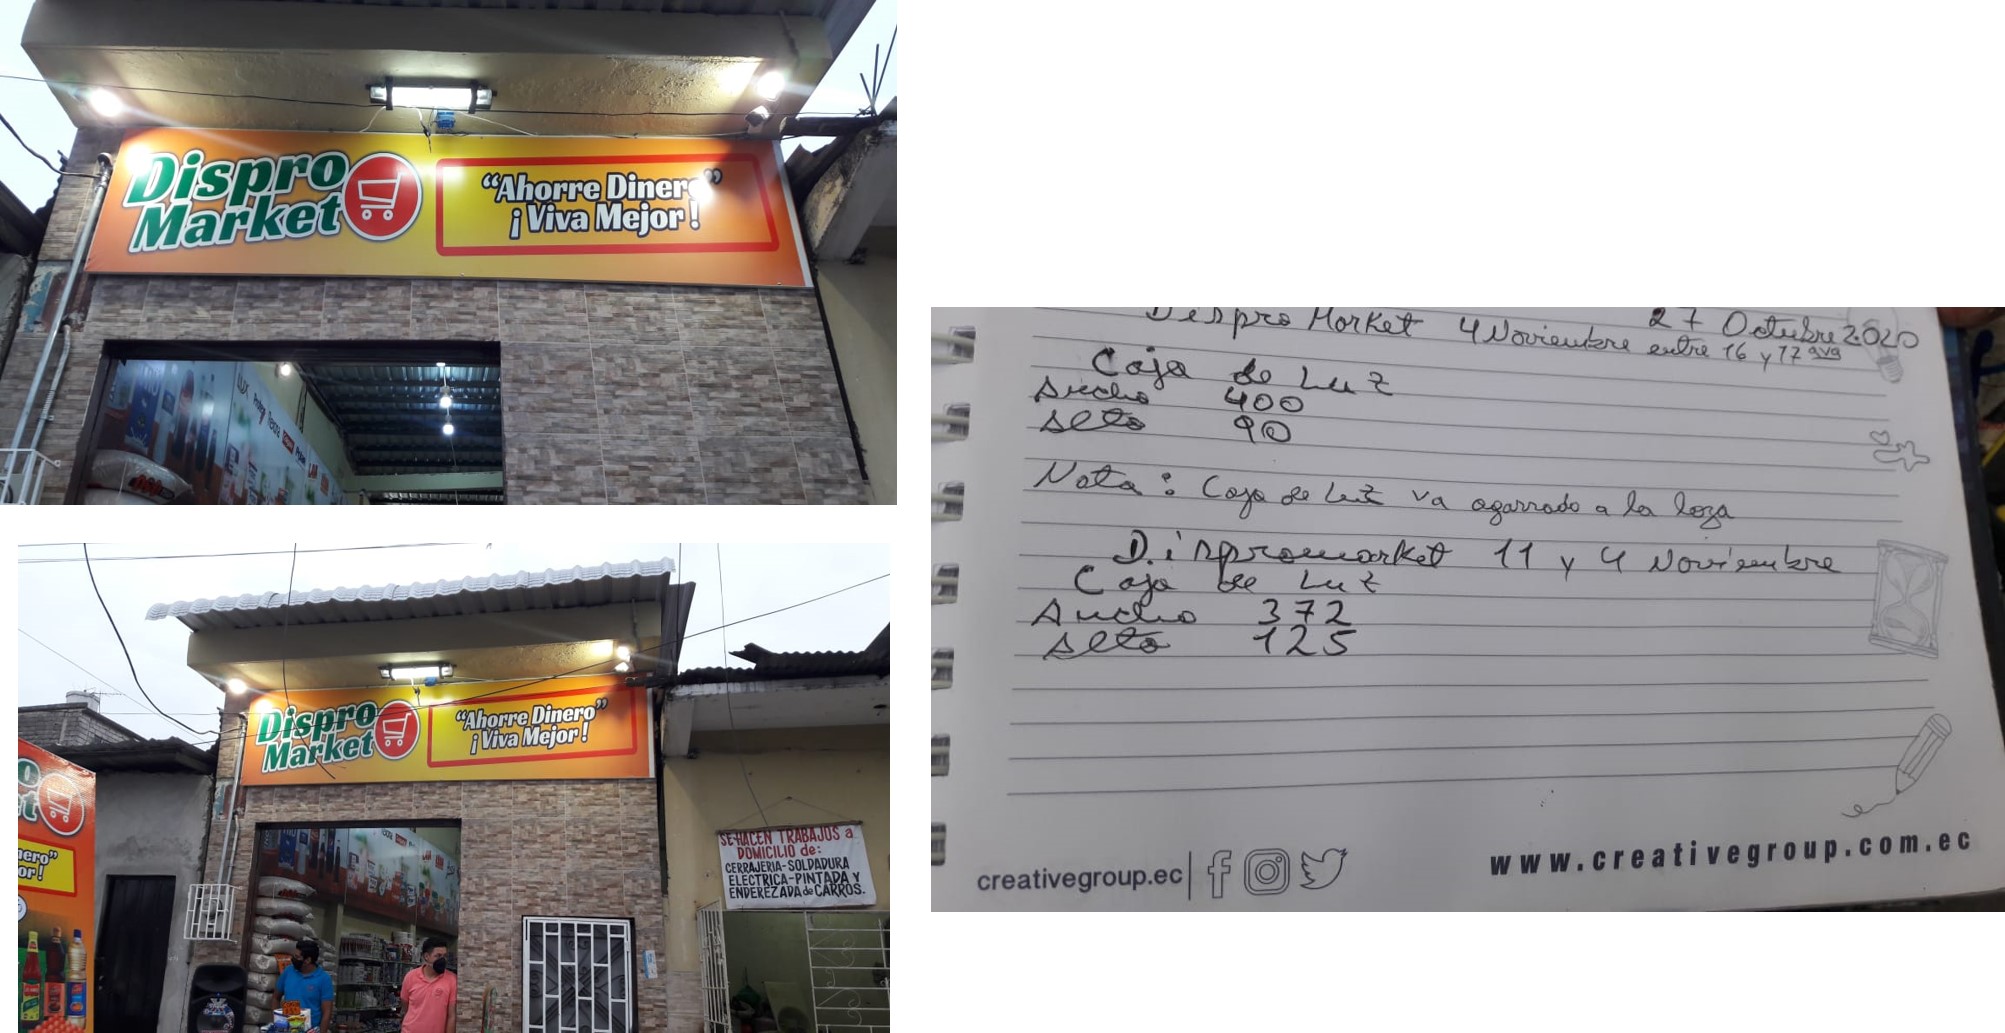 Dispro
Market
“Ahorre Dinero”
¡Viva Mejor!
LUX
Dispro
Market
“Ahorre Dinero”
¡Viva Mejor!
SE HACEN TRABAJOS a
DOMICILIO de:
CERRAJERIA-SOLDADURA
ELECTRICA-PINTADA Y
ENDEREZADA de CARROS.
27 Octubre 2020
Dispro Market 4 Noviembre entre 16 y 17 ava
Caja de Luz
Ancho 400
Alto 90
Nota: Caja de Luz va agarrado a la loza
Dispromarket 11 y 4 Noviembre
Caja de Luz
Ancho 372
Alto 125
creativegroup.ec
www.creativegroup.com.ec